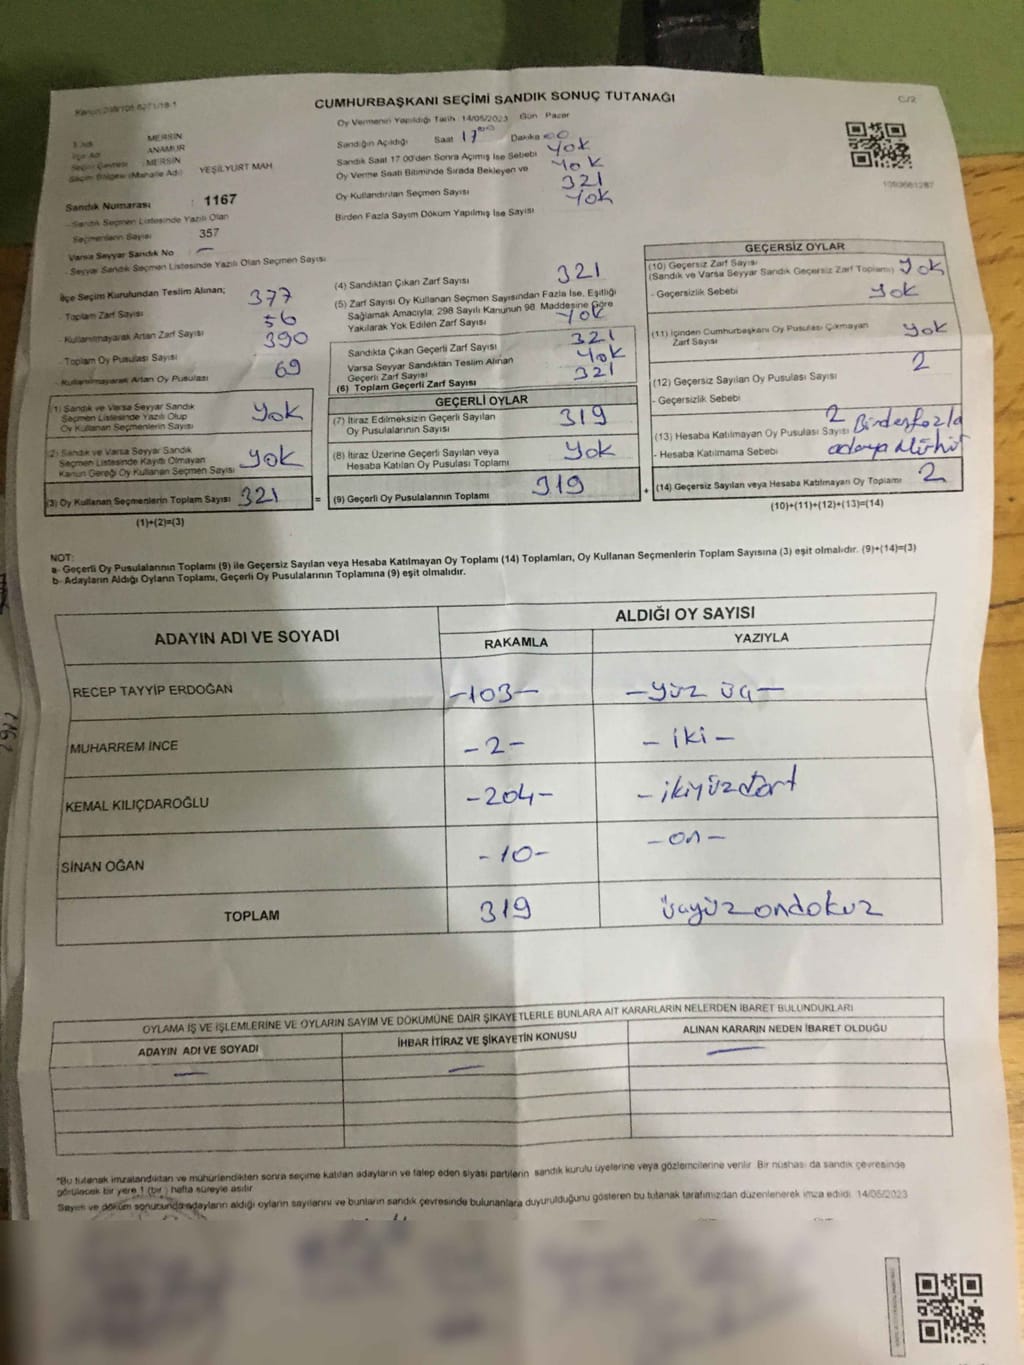 CUMHURBAŞKANI SEÇİMİ SANDIK SONUÇ TUTANAĞI
C/2
Oy Vermenin Yapıldığı Tarih 14/05/2023 Gün Pazar
Sandığın Açıldığı Saat 17 00 Dakika 00
Sandık Saat 17 00'den Sonra Açımış İse Sebebi Yok
Oy Verme Saati Bitiminde Sırada Bekleyen ve Yok
Oy Kullandırılan Seçmen Sayısı 321
Birden Fazla Sayım Döküm Yapılmış İse Sayısı Yok
İlçe Adı
MERSİN
ANAMUR
MERSİN
Seçim Bölgesi (Mahalle Adı) YEŞİLYURT MAH
Sandık Numarası : 1167
- Sandık Seçmen Listesinde Yazılı Olan
Seçmenlerin Sayısı 357
Varsa Seyyar Sandık No : —
- Seyyar Sandık Seçmen Listesinde Yazılı Olan Seçmen Sayısı
İlçe Seçim Kurulundan Teslim Alınan;
- Toplam Zarf Sayısı 377
- Kullanılmayarak Artan Zarf Sayısı 56
- Toplam Oy Pusulası Sayısı 390
- Kullanılmayarak Artan Oy Pusulası 69
1) Sandık ve Varsa Seyyar Sandık
Seçmen Listesinde Yazılı Olup
Oy Kullanan Seçmenlerin Sayısı Yok
2) Sandık ve Varsa Seyyar Sandık
Seçmen Listesinde Kayıtlı Olmayan
Kanun Gereği Oy Kullanan Seçmen Sayısı Yok
(3) Oy Kullanan Seçmenlerin Toplam Sayısı 321
(1)+(2)=(3)
(4) Sandıktan Çıkan Zarf Sayısı 321
(5) Zarf Sayısı Oy Kullanan Seçmen Sayısından Fazla İse, Eşitliği
Sağlamak Amacıyla; 298 Sayılı Kanunun 98. Maddesine Göre
Yakılarak Yok Edilen Zarf Sayısı Yok
Sandıkta Çıkan Geçerli Zarf Sayısı 321
Varsa Seyyar Sandıktan Teslim Alınan
Geçerli Zarf Sayısı Yok
(6) Toplam Geçerli Zarf Sayısı 321
=
GEÇERLİ OYLAR
(7) İtiraz Edilmeksizin Geçerli Sayılan
Oy Pusulalarının Sayısı 319
(8) İtiraz Üzerine Geçerli Sayılan veya
Hesaba Katılan Oy Pusulası Toplamı Yok
(9) Geçerli Oy Pusulalarının Toplamı 319
+
GEÇERSİZ OYLAR
(10) Geçersiz Zarf Sayısı
(Sandık ve Varsa Seyyar Sandık Geçersiz Zarf Toplamı) Yok
- Geçersizlik Sebebi Yok
(11) İçinden Cumhurbaşkanı Oy Pusulası Çıkmayan
Zarf Sayısı Yok
(12) Geçersiz Sayılan Oy Pusulası Sayısı 2
- Geçersizlik Sebebi
(13) Hesaba Katılmayan Oy Pusulası Sayısı 2 Birden fazla
- Hesaba Katılmama Sebebi adaya Mühür
(14) Geçersiz Sayılan veya Hesaba Katılmayan Oy Toplamı 2
(10)+(11)+(12)+(13)=(14)
NOT:
a- Geçerli Oy Pusulalarının Toplamı (9) ile Geçersiz Sayılan veya Hesaba Katılmayan Oy Toplamı (14) Toplamları, Oy Kullanan Seçmenlerin Toplam Sayısına (3) eşit olmalıdır. (9)+(14)=(3)
b- Adayların Aldığı Oyların Toplamı, Geçerli Oy Pusulalarının Toplamına (9) eşit olmalıdır.
ADAYIN ADI VE SOYADI
ALDIĞI OY SAYISI
RAKAMLA YAZIYLA
RECEP TAYYİP ERDOĞAN -103- -yüz üç-
MUHARREM İNCE -2- -iki-
KEMAL KILIÇDAROĞLU -204- -ikiyüzdört
SİNAN OĞAN -10- -on-
TOPLAM 319 üçyüzondokuz
OYLAMA İŞ VE İŞLEMLERİNE VE OYLARIN SAYIM VE DÖKÜMÜNE DAİR ŞİKAYETLERLE BUNLARA AİT KARARLARIN NELERDEN İBARET BULUNDUKLARI
ADAYIN ADI VE SOYADI İHBAR İTİRAZ VE ŞİKAYETİN KONUSU ALINAN KARARIN NEDEN İBARET OLDUĞU
— — —
*Bu tutanak imzalandıktan ve mühürlendikten sonra seçime katılan adayların ve talep eden siyasi partilerin sandık kurulu üyelerine veya gözlemcilerine verilir. Bir nüshası da sandık çevresinde
görülecek bir yere 1 (bir) hafta süreyle asılır.
Sayım ve döküm sonucunda adayların aldığı oyların sayılarını ve bunların sandık çevresinde bulunanlara duyurulduğunu gösteren bu tutanak tarafımızdan düzenlenerek imza edildi. 14/05/2023